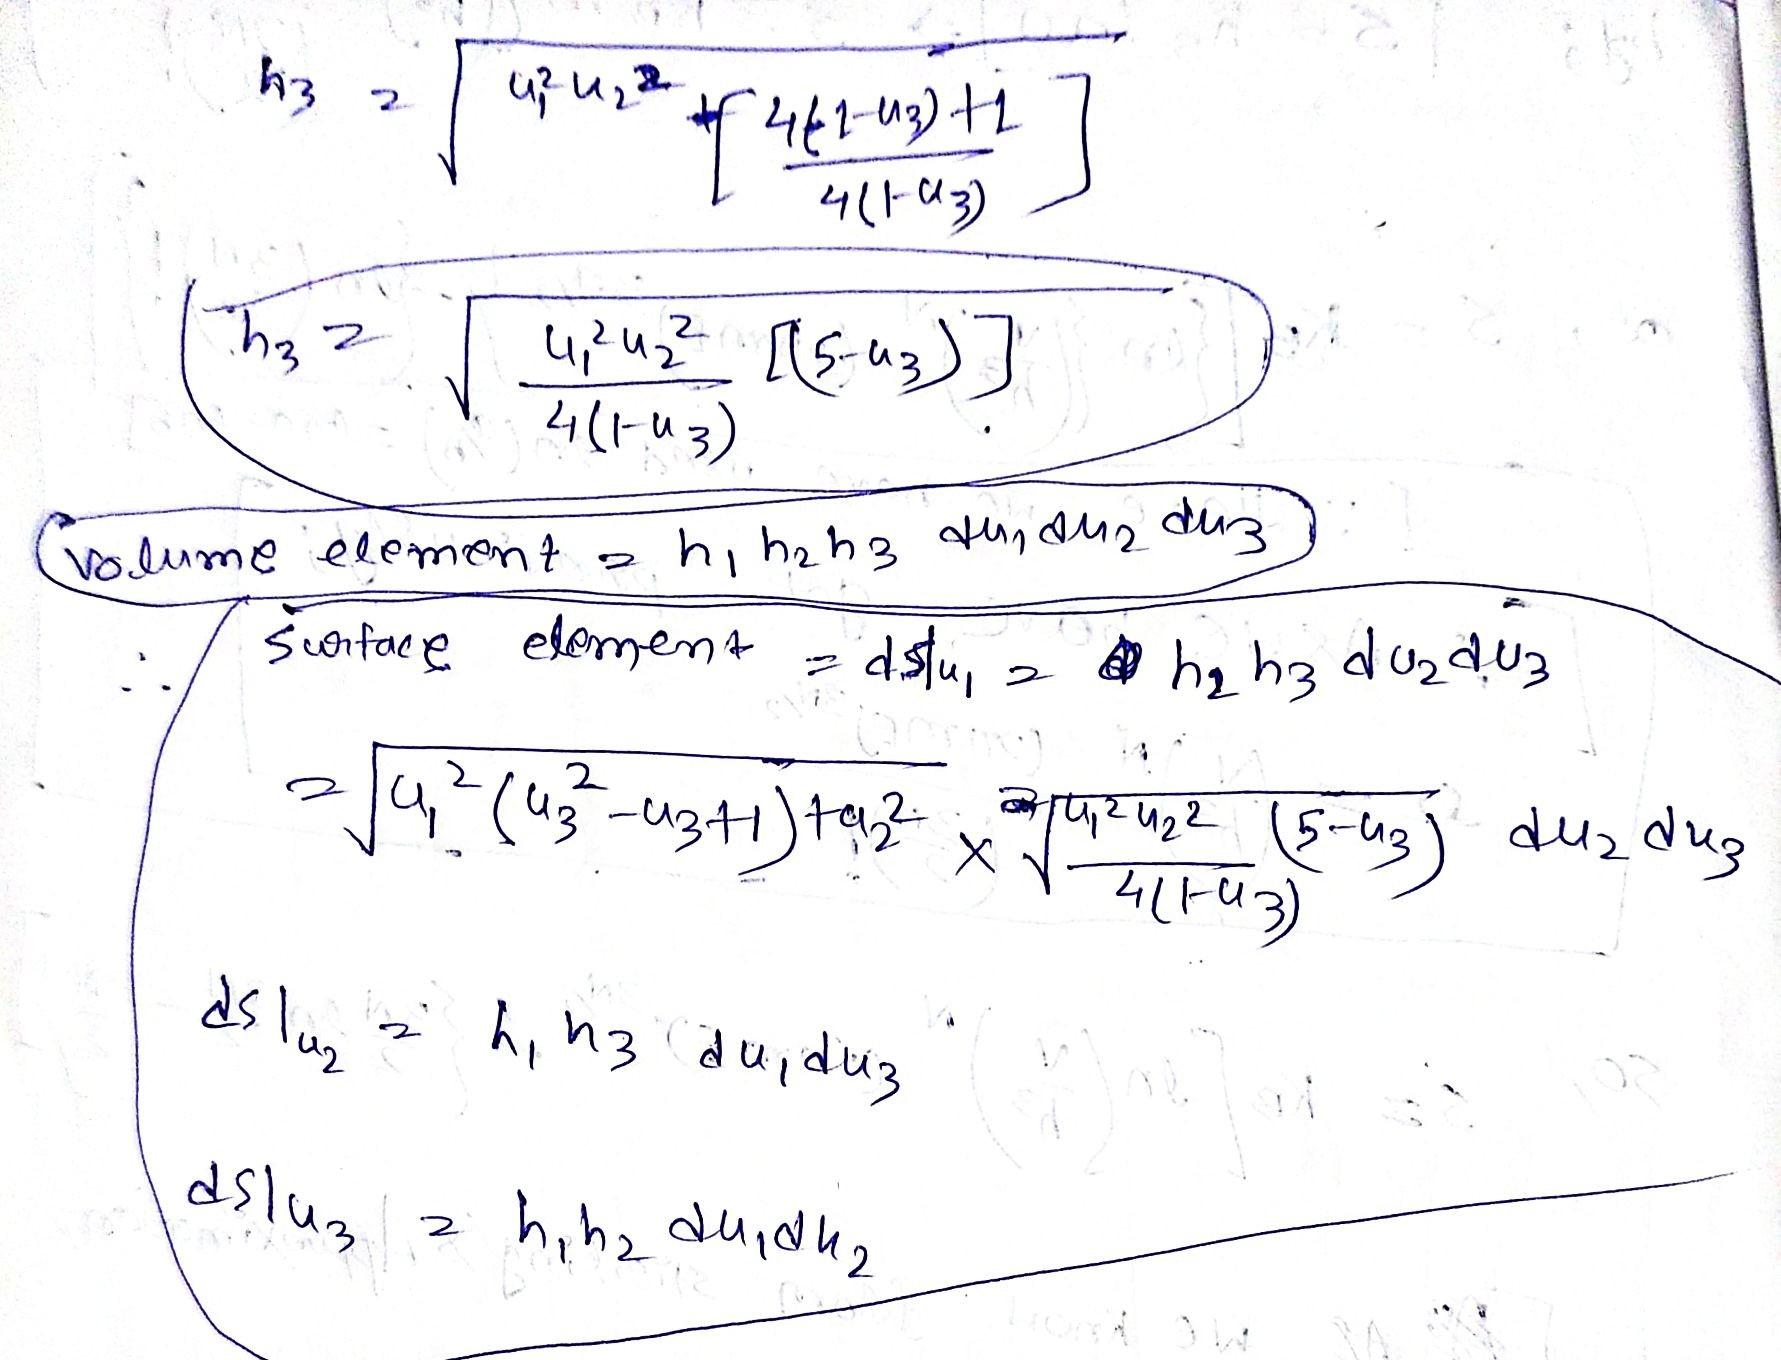 h₃ = √(u₁² u₂² + [ (4(1-u₃)+1) / (4(1-u₃)) ])
h₃ = √( (u₁² u₂²) / (4(1-u₃)) [(5-u₃)] )
Volume element = h₁ h₂ h₃ du₁ du₂ du₃
∴ Surface element = ds|u₁ = h₂ h₃ du₂ du₃
= √(u₁² (u₃² - u₃+1) + u₂²) × √( (u₁² u₂²) / (4(1-u₃)) (5-u₃) ) du₂ du₃
ds|u₂ = h₁ h₃ du₁ du₃
ds|u₃ = h₁ h₂ du₁ du₂